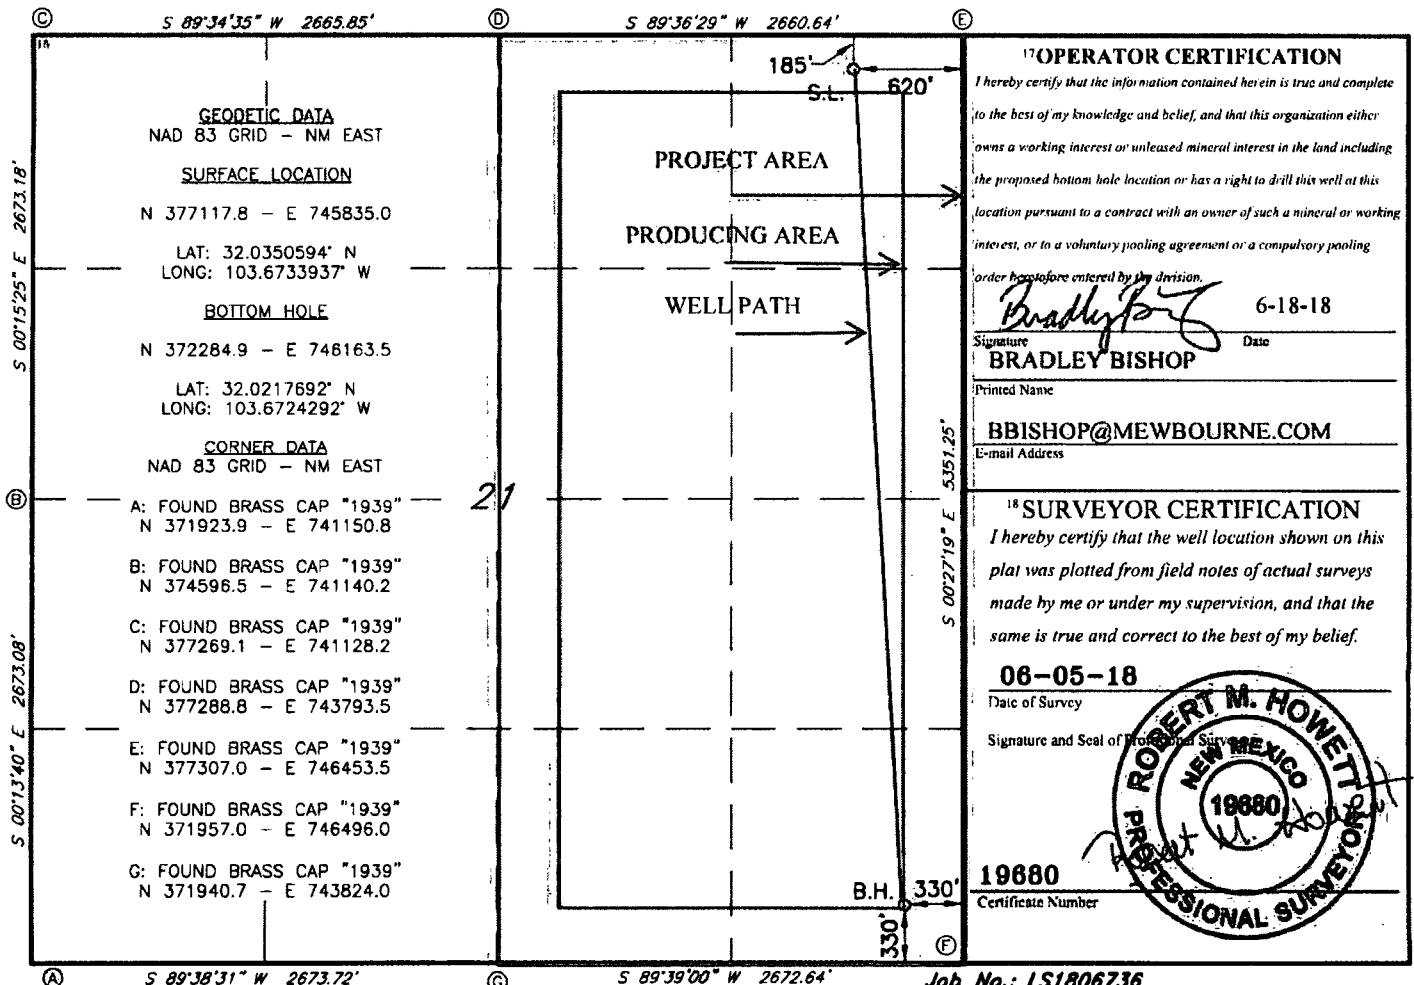 Ⓒ S 89°34'35" W 2665.85' Ⓓ S 89°36'29" W 2660.64' Ⓔ
16
GEODETIC DATA
NAD 83 GRID – NM EAST
SURFACE LOCATION
N 377117.8 – E 745835.0
LAT: 32.0350594° N
LONG: 103.6733937° W
BOTTOM HOLE
N 372284.9 – E 746163.5
LAT: 32.0217692° N
LONG: 103.6724292° W
CORNER DATA
NAD 83 GRID – NM EAST
A: FOUND BRASS CAP "1939"
N 371923.9 – E 741150.8
B: FOUND BRASS CAP "1939"
N 374596.5 – E 741140.2
C: FOUND BRASS CAP "1939"
N 377269.1 – E 741128.2
D: FOUND BRASS CAP "1939"
N 377288.8 – E 743793.5
E: FOUND BRASS CAP "1939"
N 377307.0 – E 746453.5
F: FOUND BRASS CAP "1939"
N 371957.0 – E 746496.0
G: FOUND BRASS CAP "1939"
N 371940.7 – E 743824.0
S 00°15'25" E 2673.18'
Ⓑ
S 00°13'40" E 2673.08'
21
185'
S.L.
620'
PROJECT AREA
PRODUCING AREA
WELL PATH
S 00°27'19" E 5351.25'
B.H. 330'
330'
Ⓕ
Ⓐ S 89°38'31" W 2673.72' Ⓖ S 89°39'00" W 2672.64'
17 OPERATOR CERTIFICATION
I hereby certify that the information contained herein is true and complete
to the best of my knowledge and belief, and that this organization either
owns a working interest or unleased mineral interest in the land including
the proposed bottom hole location or has a right to drill this well at this
location pursuant to a contract with an owner of such a mineral or working
interest, or to a voluntary pooling agreement or a compulsory pooling
order heretofore entered by the division.
6-18-18
Signature Date
BRADLEY BISHOP
Printed Name
BBISHOP@MEWBOURNE.COM
E-mail Address
18 SURVEYOR CERTIFICATION
I hereby certify that the well location shown on this
plat was plotted from field notes of actual surveys
made by me or under my supervision, and that the
same is true and correct to the best of my belief.
06–05–18
Date of Survey
Signature and Seal of Professional Surveyor
ROBERT M. HOWETT
NEW MEXICO
19680
PROFESSIONAL SURVEYOR
Robert M. Howett
19680
Certificate Number
Job No.: LS1806736